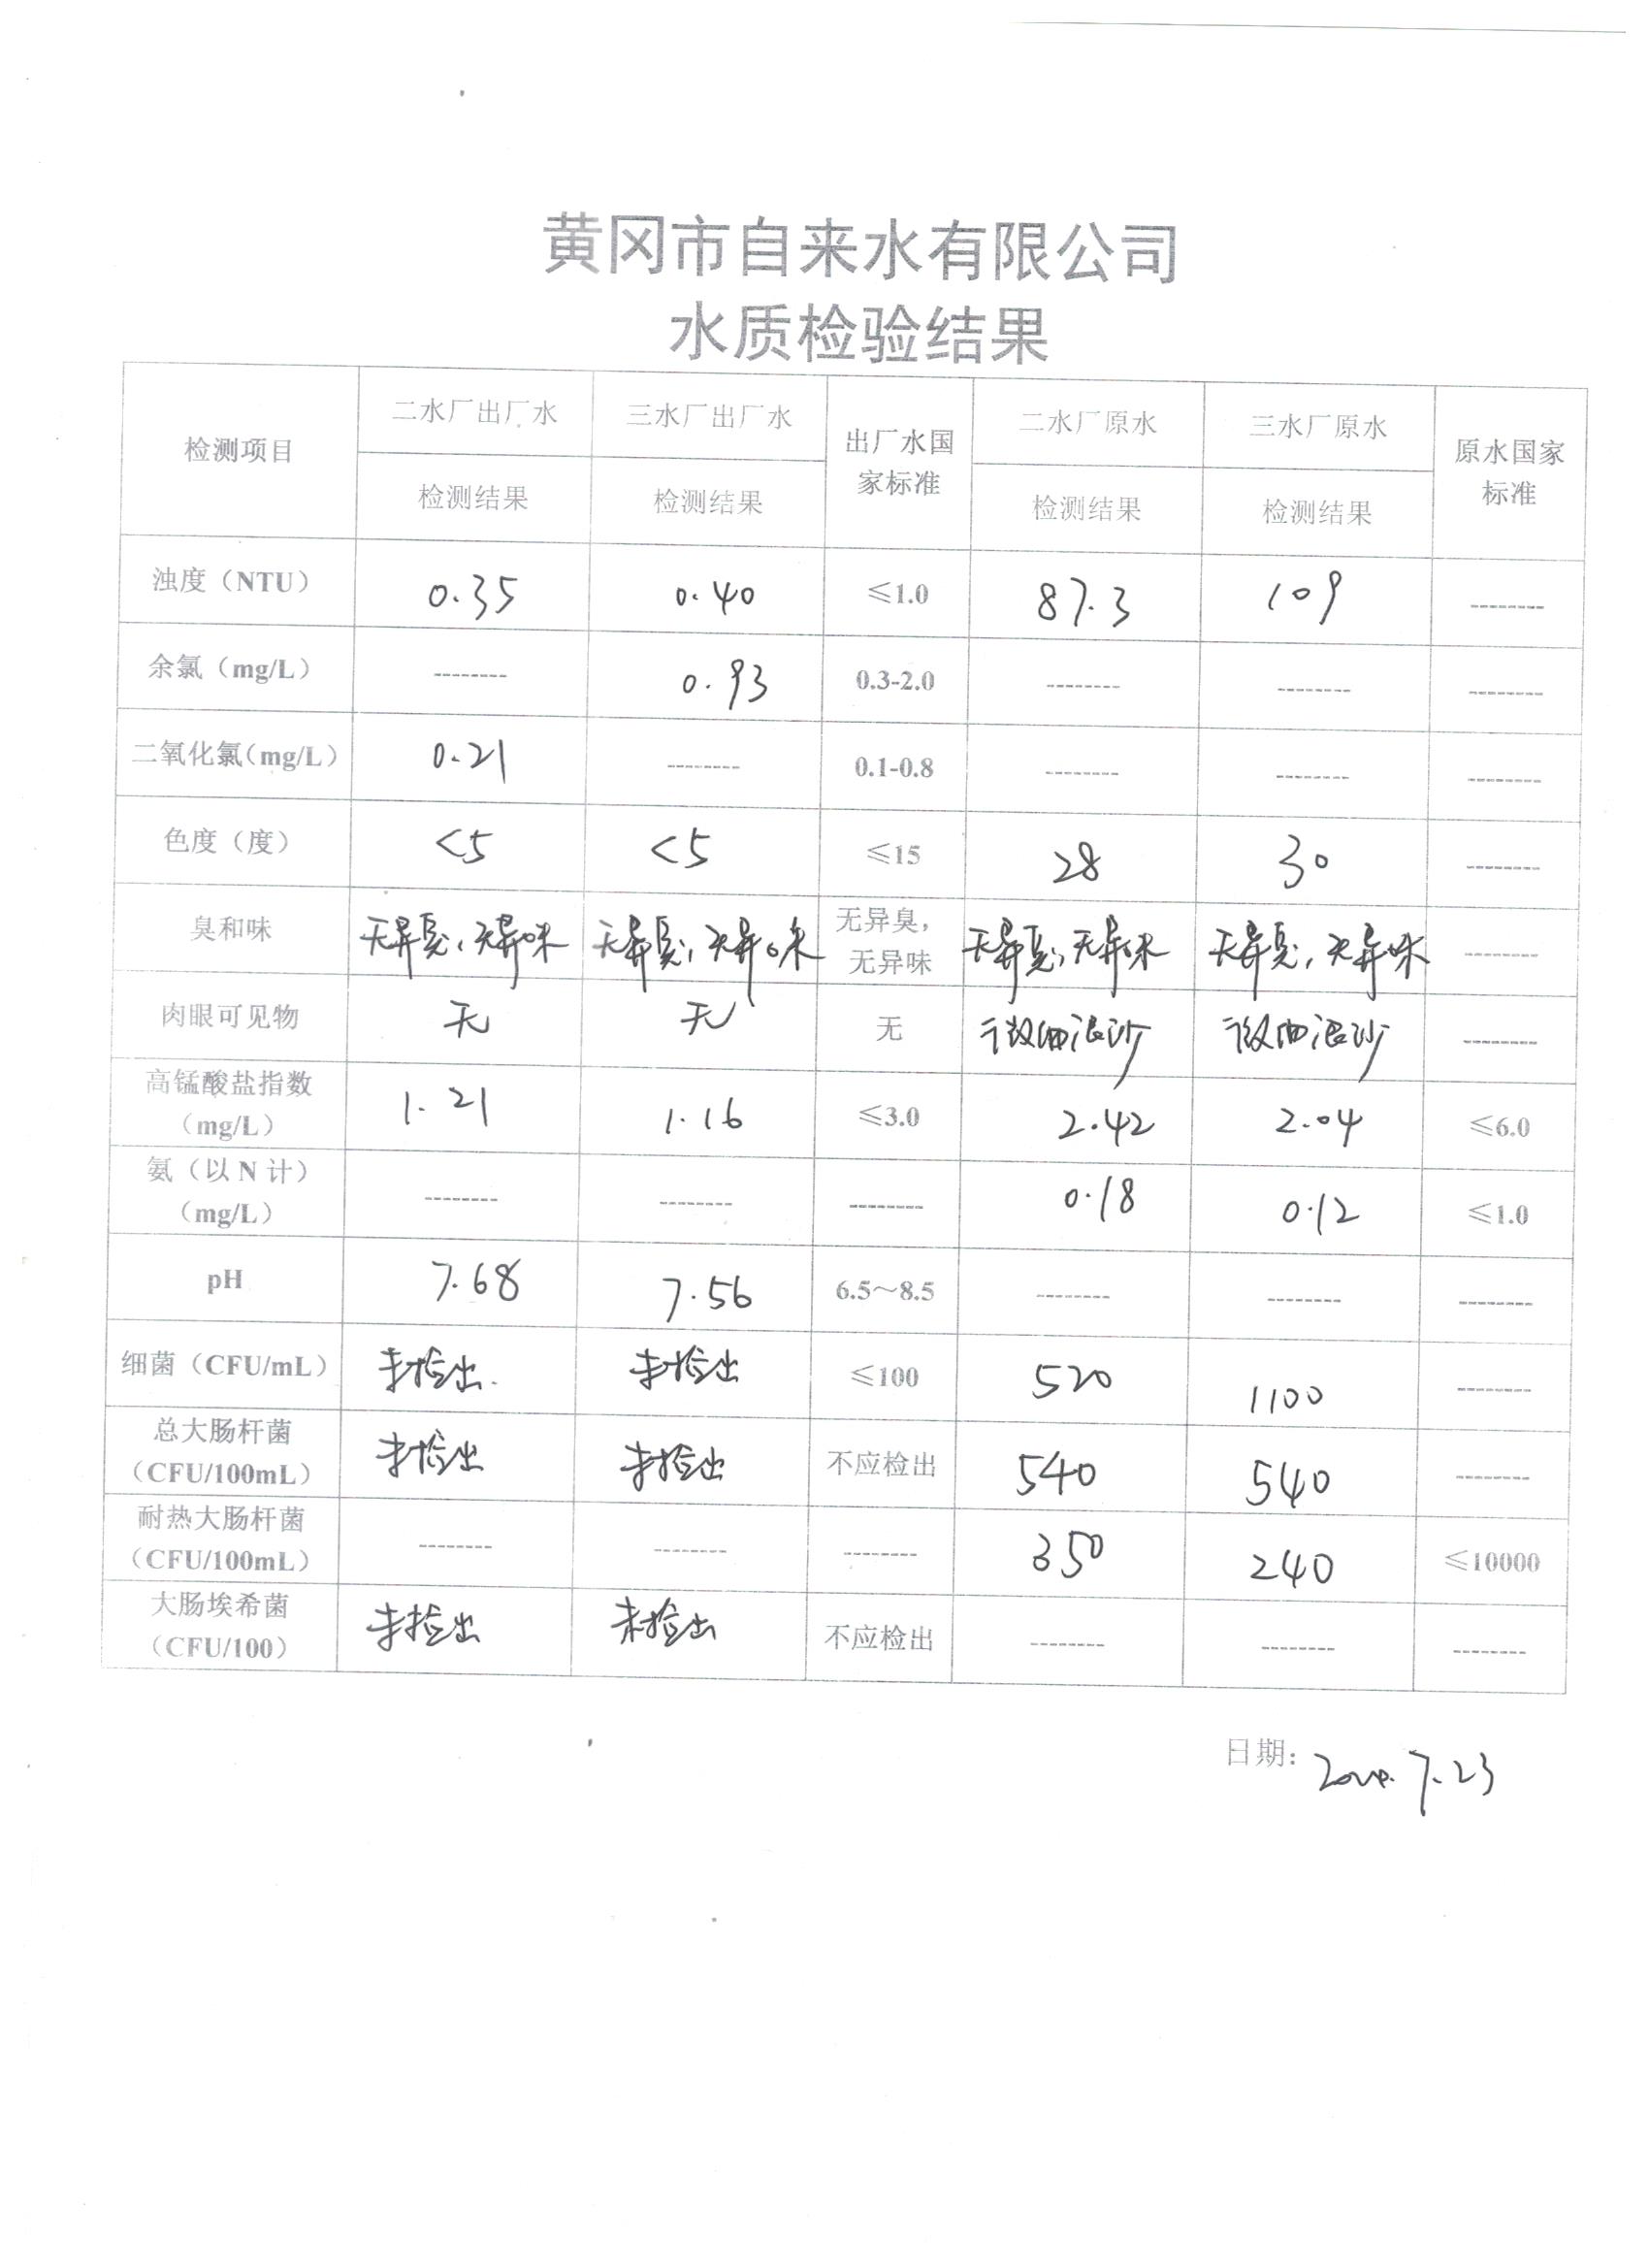 黄冈市自来水有限公司
水质检验结果
检测项目 二水厂出厂水 三水厂出厂水 出厂水国家标准 二水厂原水 三水厂原水 原水国家标准
检测结果 检测结果 检测结果 检测结果
浊度（NTU） 0.35 0.40 ≤1.0 87.3 109 --------
余氯（mg/L） -------- 0.93 0.3-2.0 -------- -------- --------
二氧化氯（mg/L） 0.21 -------- 0.1-0.8 -------- -------- --------
色度（度） <5 <5 ≤15 28 30 --------
臭和味 无异臭，无异味 无异臭，无异味 无异臭，无异味 无异臭，无异味 无异臭，无异味 --------
肉眼可见物 无 无 无 微细泥沙 微细泥沙 --------
高锰酸盐指数（mg/L） 1.21 1.16 ≤3.0 2.42 2.04 ≤6.0
氨（以 N 计）（mg/L） -------- -------- -------- 0.18 0.12 ≤1.0
pH 7.68 7.56 6.5～8.5 -------- -------- --------
细菌（CFU/mL） 未检出 未检出 ≤100 520 1100 --------
总大肠杆菌（CFU/100mL） 未检出 未检出 不应检出 540 540 --------
耐热大肠杆菌（CFU/100mL） -------- -------- -------- 350 240 ≤10000
大肠埃希菌（CFU/100） 未检出 未检出 不应检出 -------- -------- --------
日期： 7.23